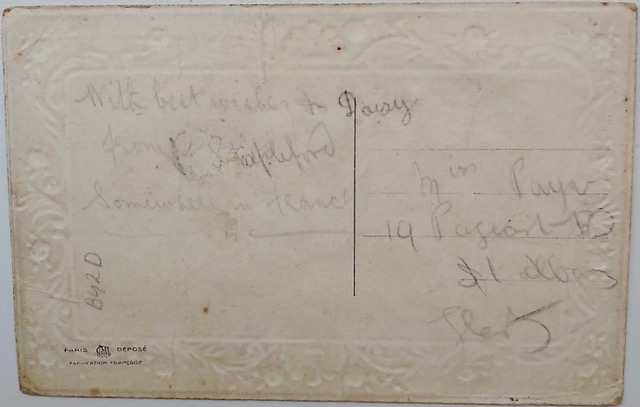 With best wishes to Daisy
from Stapleford
Somewhere in France
Miss Payn
19 Pageant
St Albans
B42D
PARIS DEPOSÉ
FABRICATION FRANÇAISE